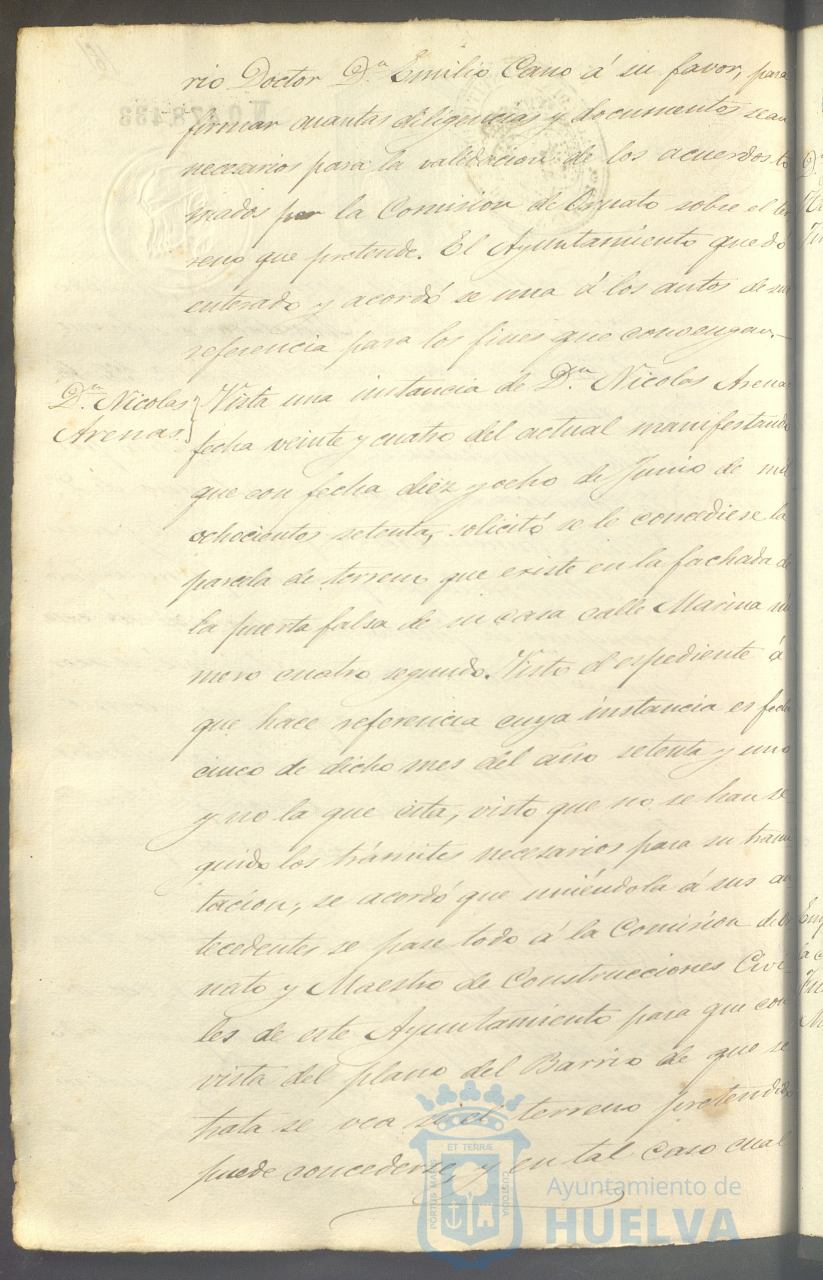 rio Doctor Dn. Emilio Cano á su favor, para
firmar cuantas diligencias y documentos sean
necesarios para la validacion de los acuerdos to
mados por la Comision de Ornato sobre el ter
reno que pretende. El Ayuntamiento quedó
enterado y acordó se una á los autos de su
referencia para los fines que convengan.
Dn. Nicolas
Arenas
Vista una instancia de Dn. Nicolas Arenas
fecha veinte y cuatro del actual manifestando
que con fecha diez y ocho de Junio de mil
ochocientos setenta, solicitó se le concediese la
parcela de terreno que existe en la fachada de
la puerta falsa de su casa calle Marina nú
mero cuatro segundo. Visto el espediente á
que hace referencia cuya instancia es fecha
cinco de dicho mes del año setenta y uno
y no la que cita, visto que no se han se
guido los trámites necesarios para su trami
tacion, se acordó que uniéndola á sus an
tecedentes se pase todo á la Comision de Or
nato y Maestro de Construcciones Civi-
les de este Ayuntamiento para que con
vista del plano del Barrio de que se
trata se vea si el terreno pretendido
puede concederse, y en tal caso cual
ET TERRAE
PORTUS MARIS
CUSTODIA
Ayuntamiento de
HUELVA